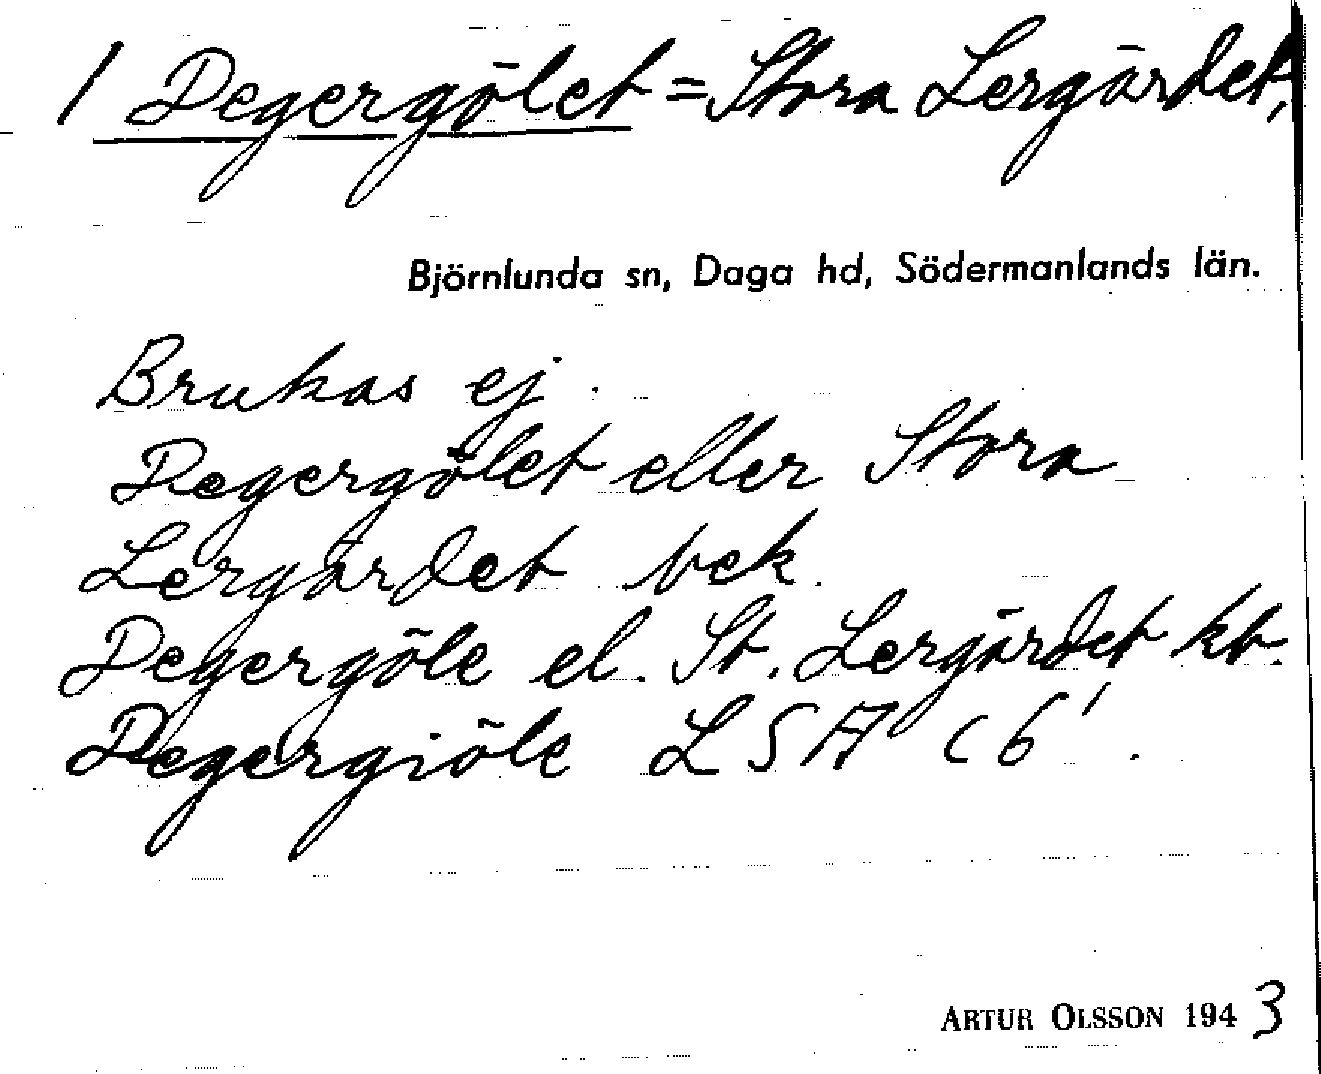 / Degergölet = Stora Lergärdet,
Björnlunda sn, Daga hd, Södermanlands län.
Brukas ej.
Degergölet eller Stora
Lergärdet bek.
Degergöle el. St. Lergärdet kb.
Degergiöle LSA C6'.
ARTUR OLSSON 1943